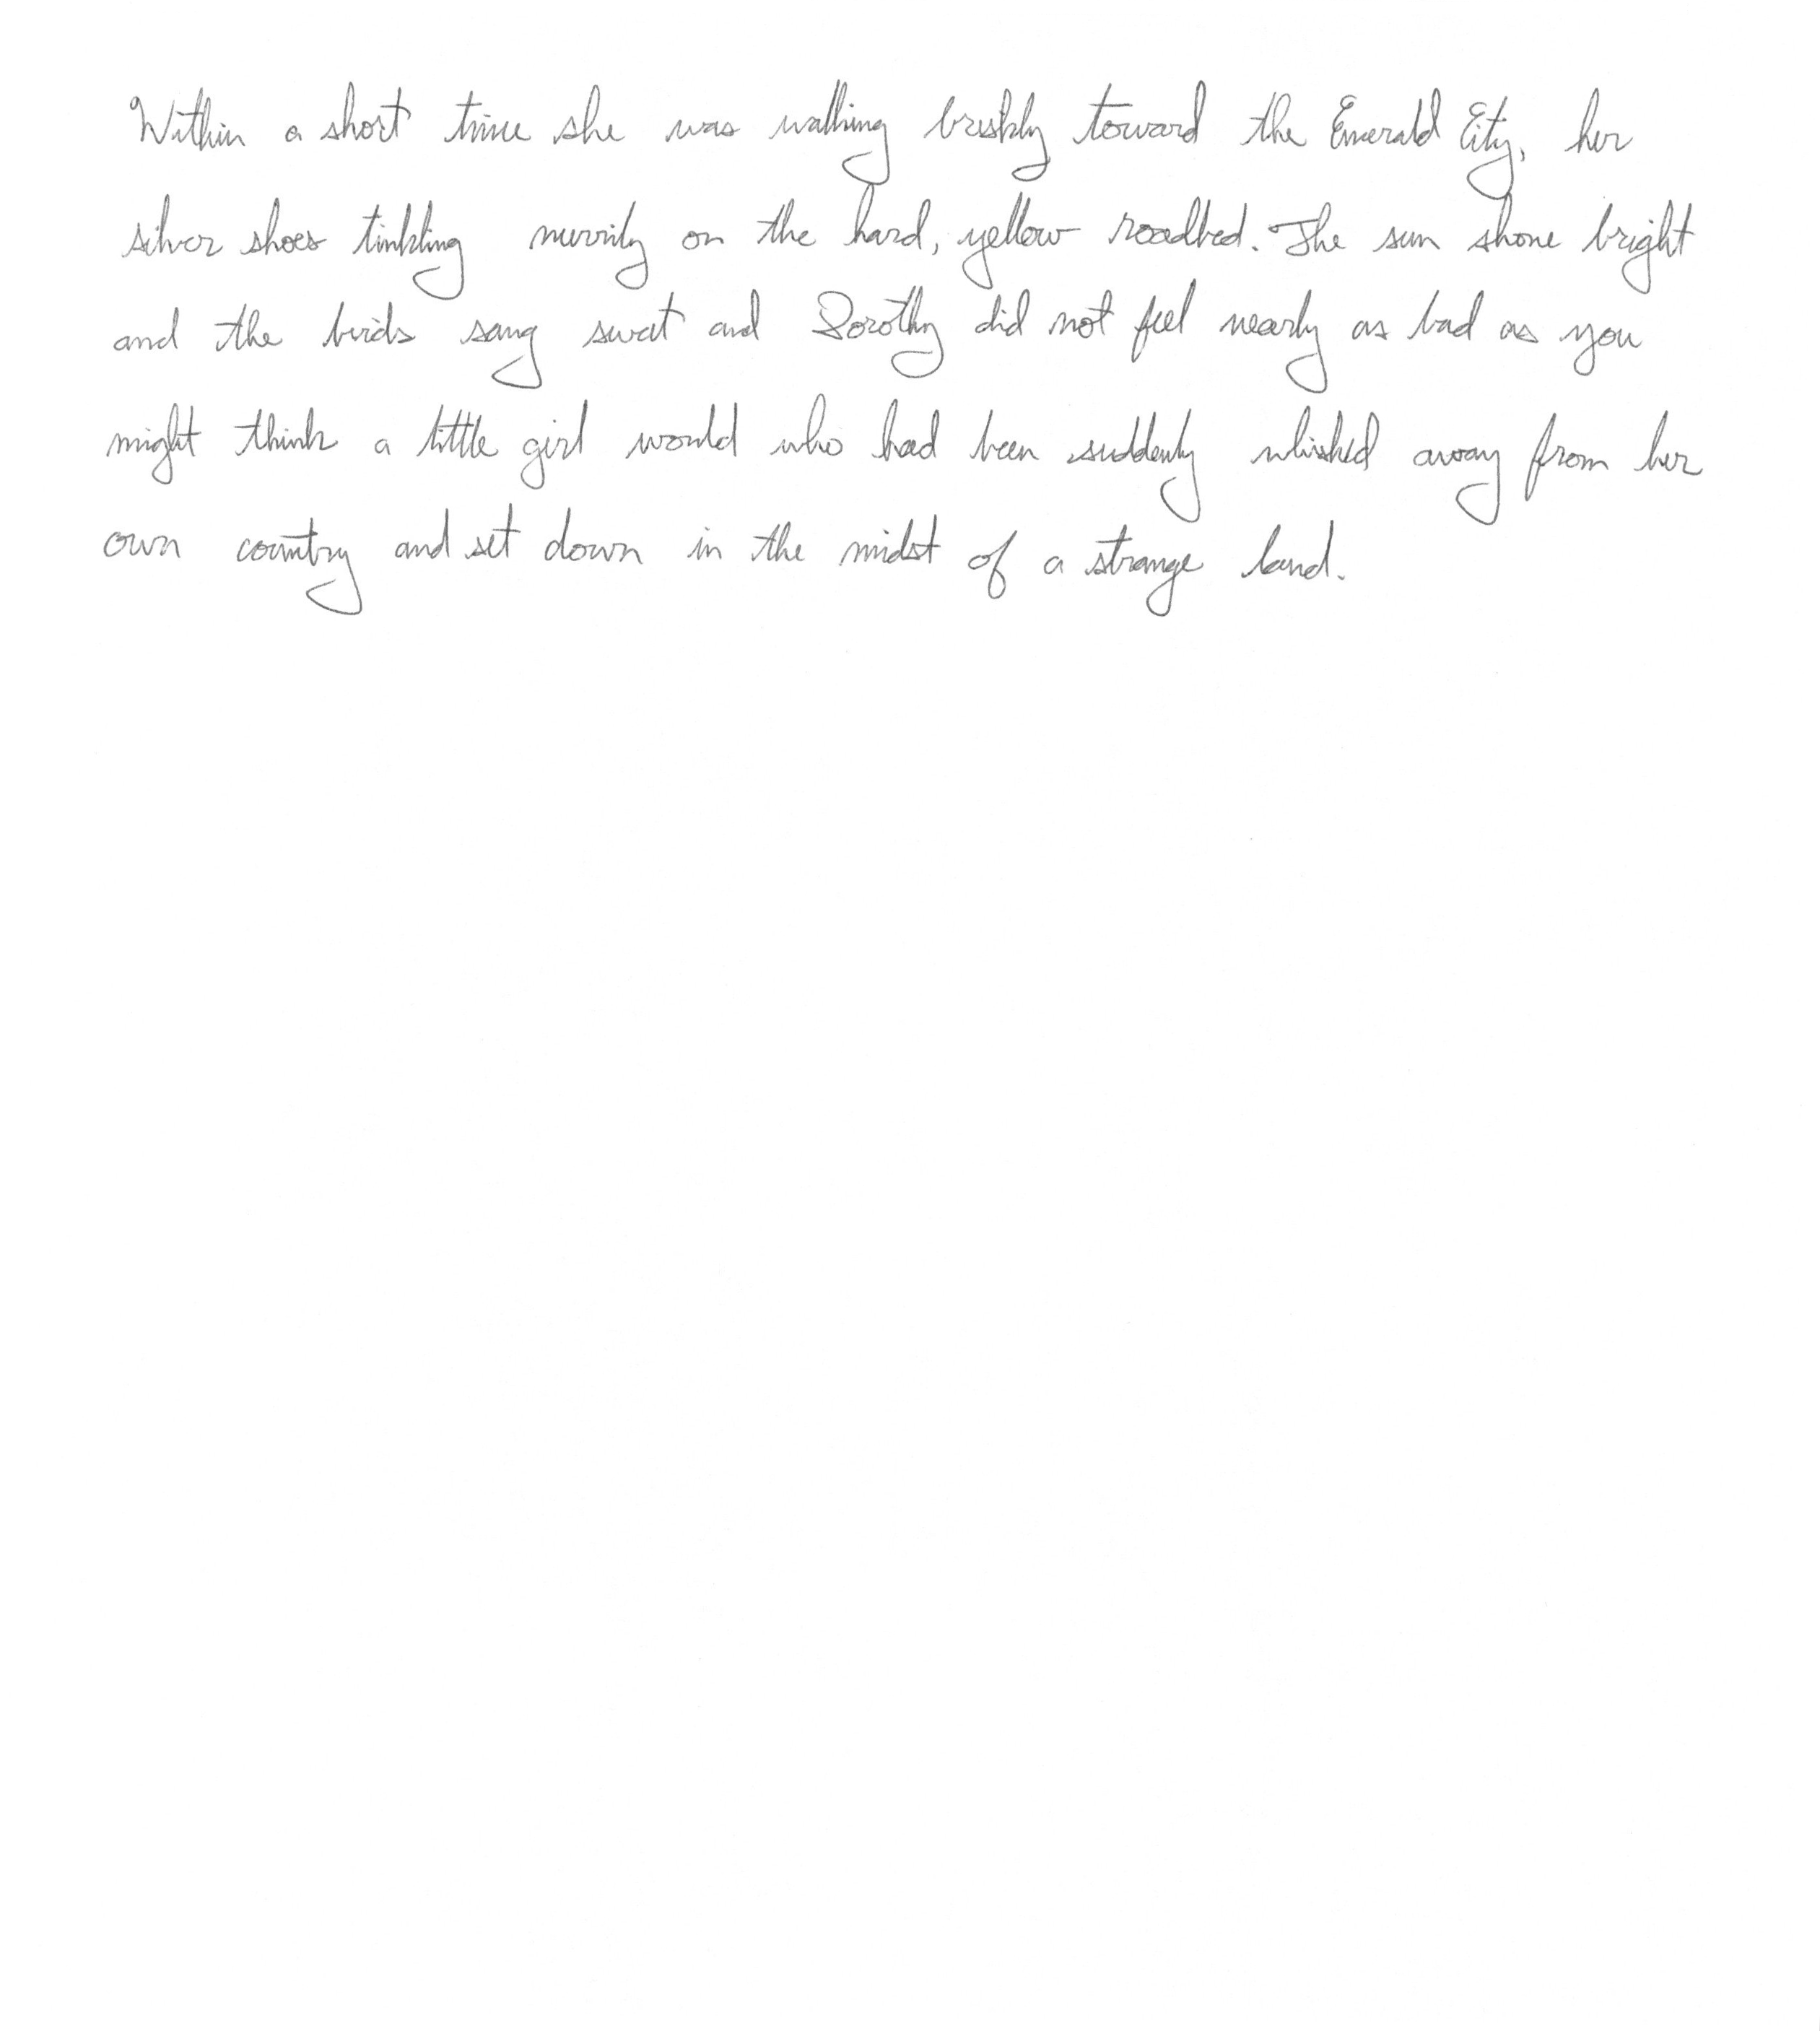 Within a short time she was walking briskly toward the Emerald City, her
silver shoes tinkling merrily on the hard, yellow roadbed. The sun shone bright
and the birds sang sweet and Dorothy did not feel nearly as bad as you
might think a little girl would who had been suddenly whisked away from her
own country and set down in the midst of a strange land.